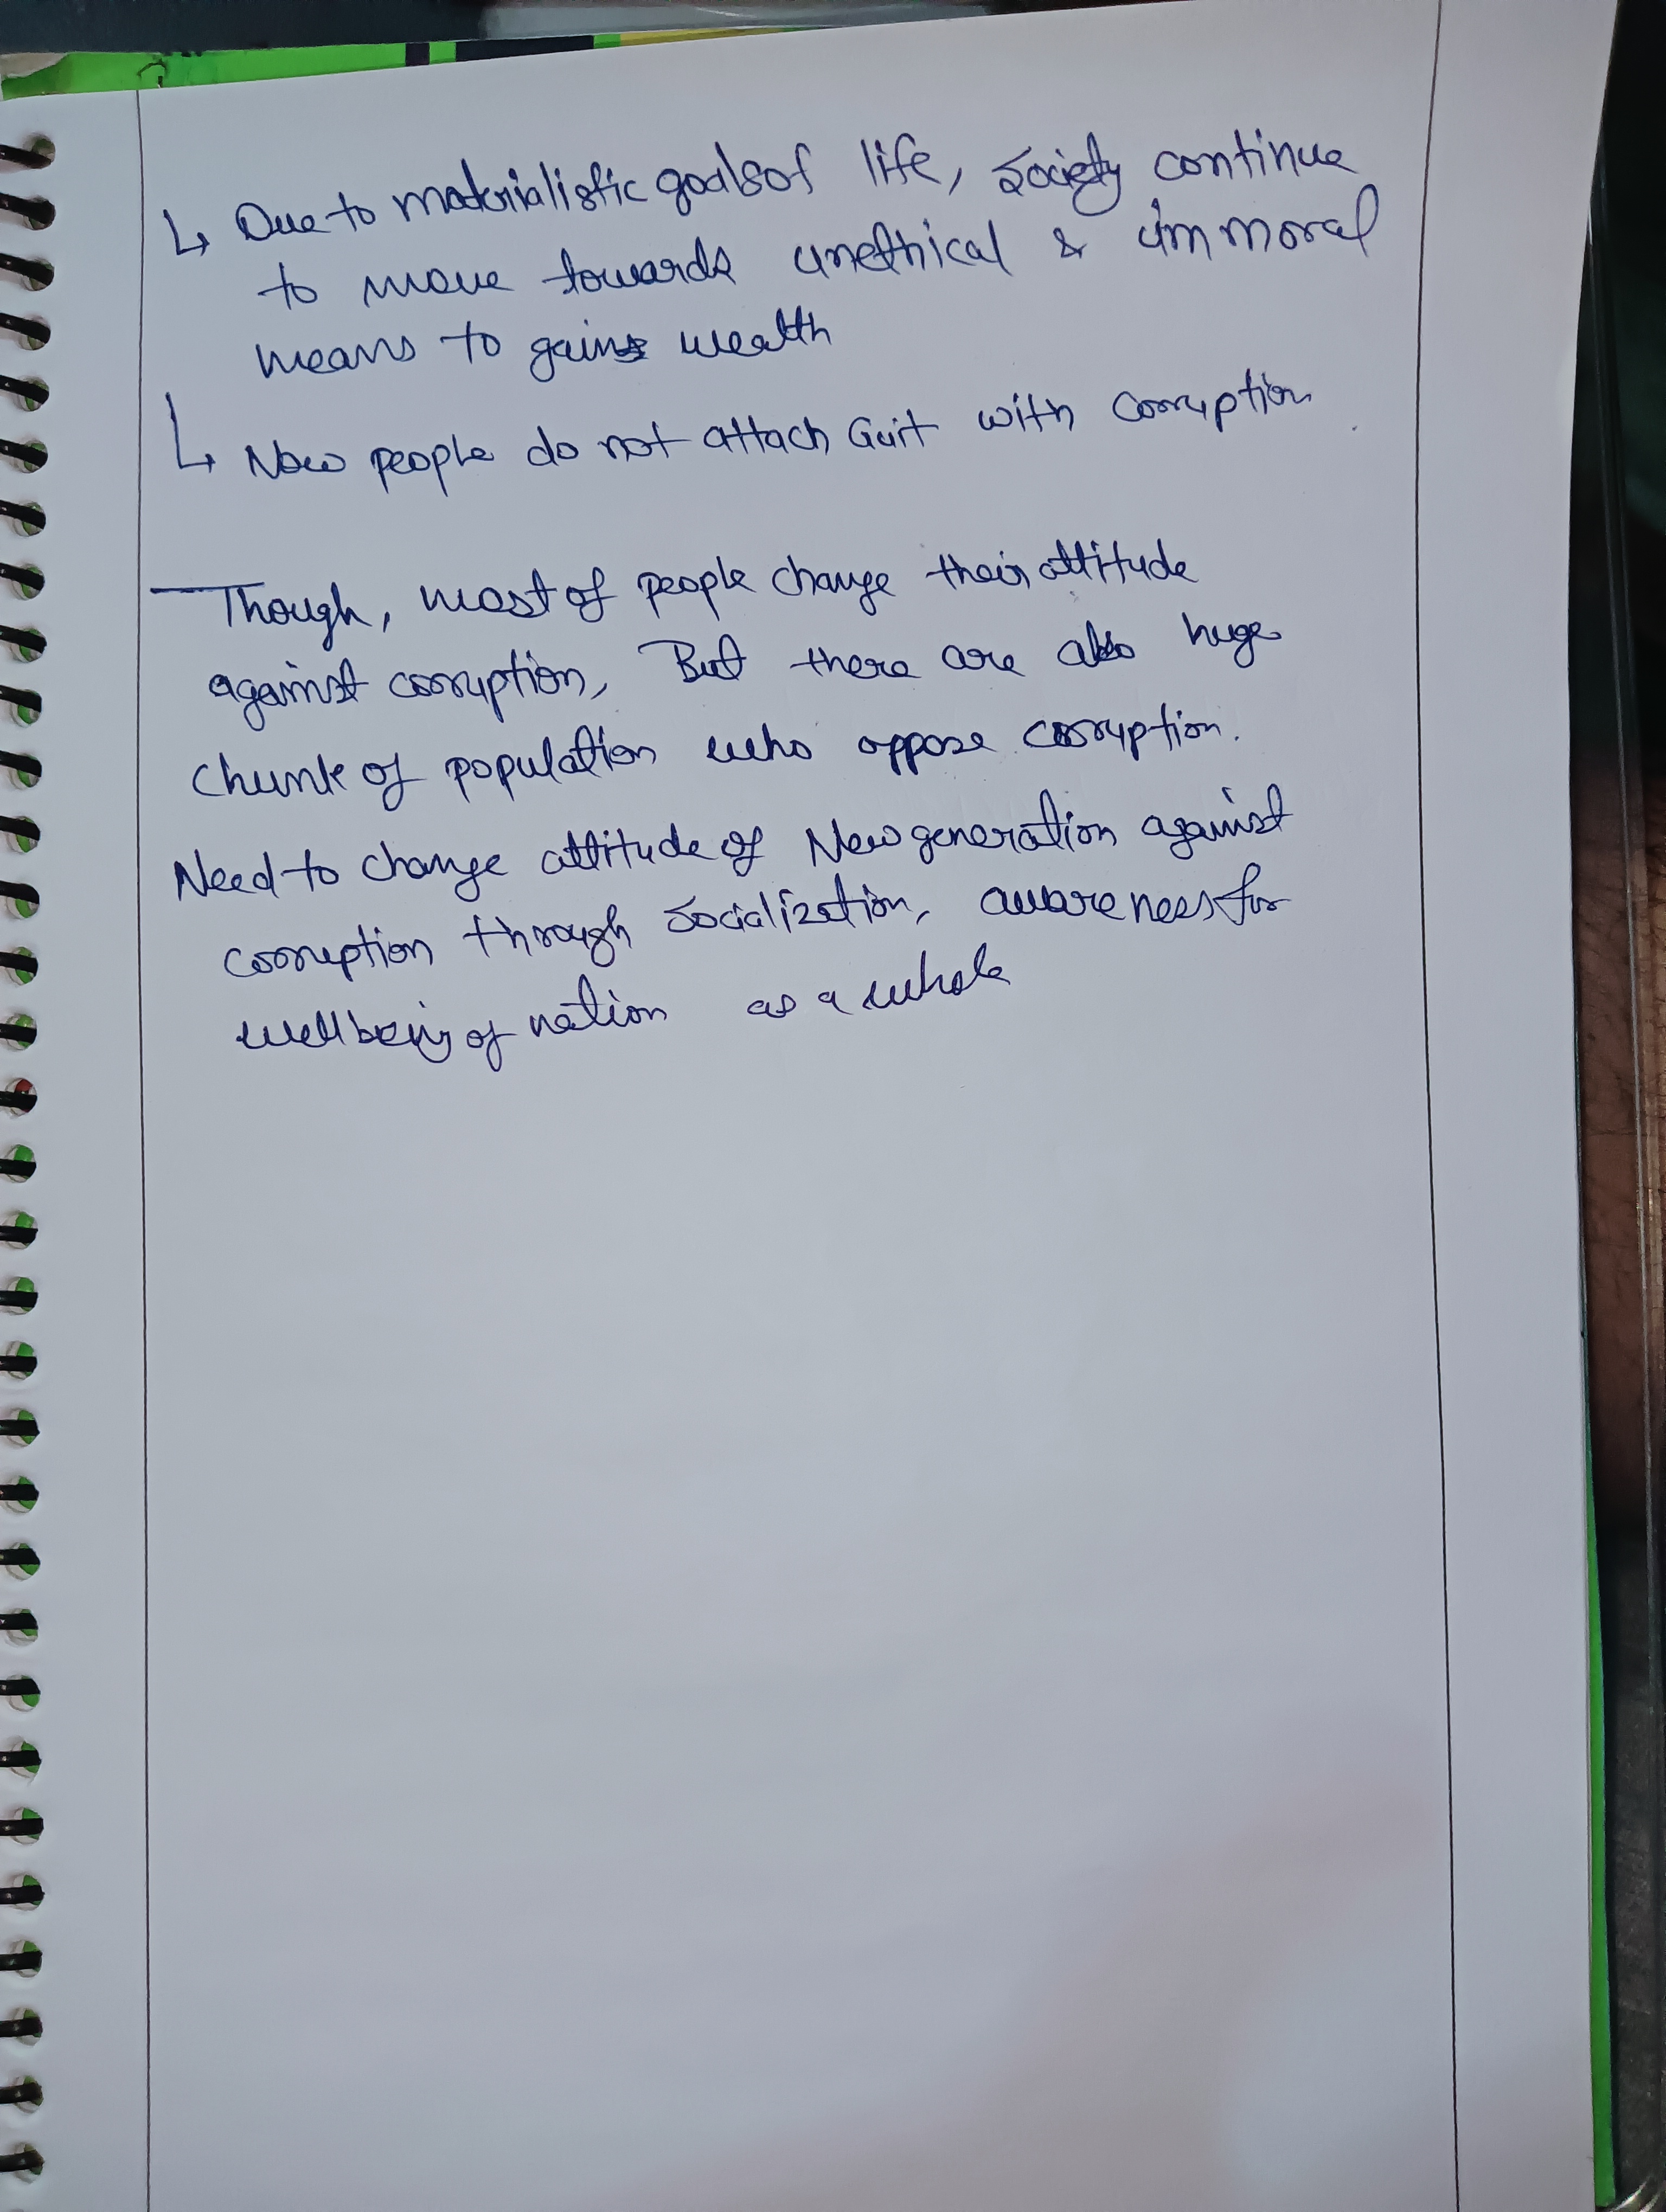 ↳ Due to materialistic goals of life, society continue
to move towards unethical & immoral
means to gain wealth
↳ Now people do not attach Guit with corruption
— Though, most of people change their attitude
against corruption, But there are also huge
chunk of population who oppose corruption.
Need to change attitude of New generation against
corruption through socialization, awareness for
wellbeing of nation as a whole